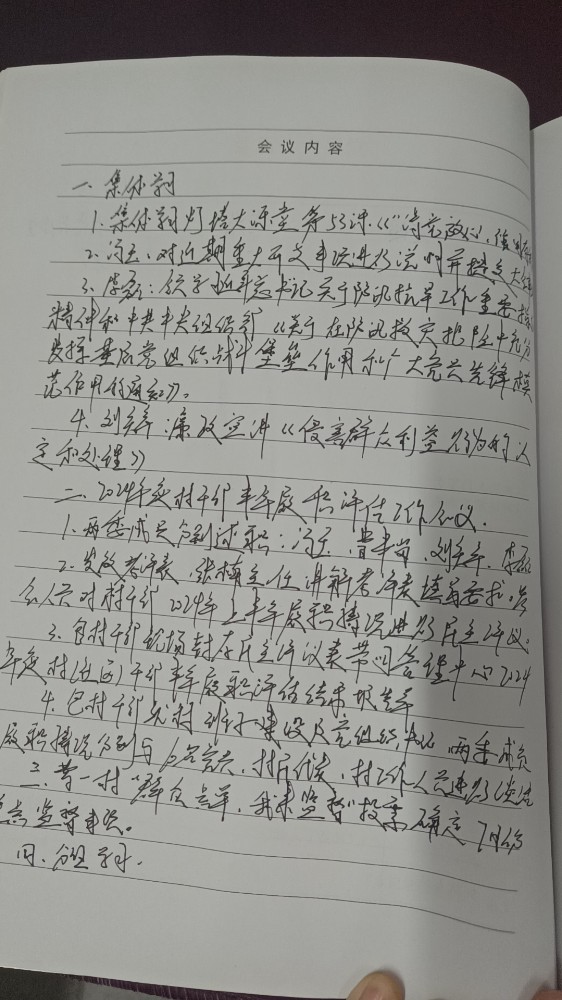 会议内容
一、集体学习
1. 集体学习灯塔大课堂第53课《“
2. 冯 : 对近期重大 事项进行说明并提交大
3. : 领学习近平总书记关于防汛抗旱工作重要指
精神和中共中央组织部《关于在防汛救灾抢险中充分
发挥基层党组织战斗堡垒作用和广大党员先锋模
范作用的通知》。
4. 刘 : 廉政宣讲《侵害群众利益 行为的认
定和处理》
二、2024年度村干部半年履职评估工作会议.
1. 两委成员分别述职: 冯 、 、刘 、李
2. 发放考评表, 张 主任讲解考评表填写要求, 与
会人员对村干部2024年上半年履职情况进行民主评议.
3. 包村干部现场封存民主评议表带回管理 2024
年度村(社区)干部半年履职评估结果报告单
4. 包村干部就村 班子建设及党组织书记、两委成员
履职情况分别与6名党员、村民代表、村工作人员进行谈话
三、第一村“群众点单, 我来监督”投票确定7月份
点监督事项。
四、分组学习.